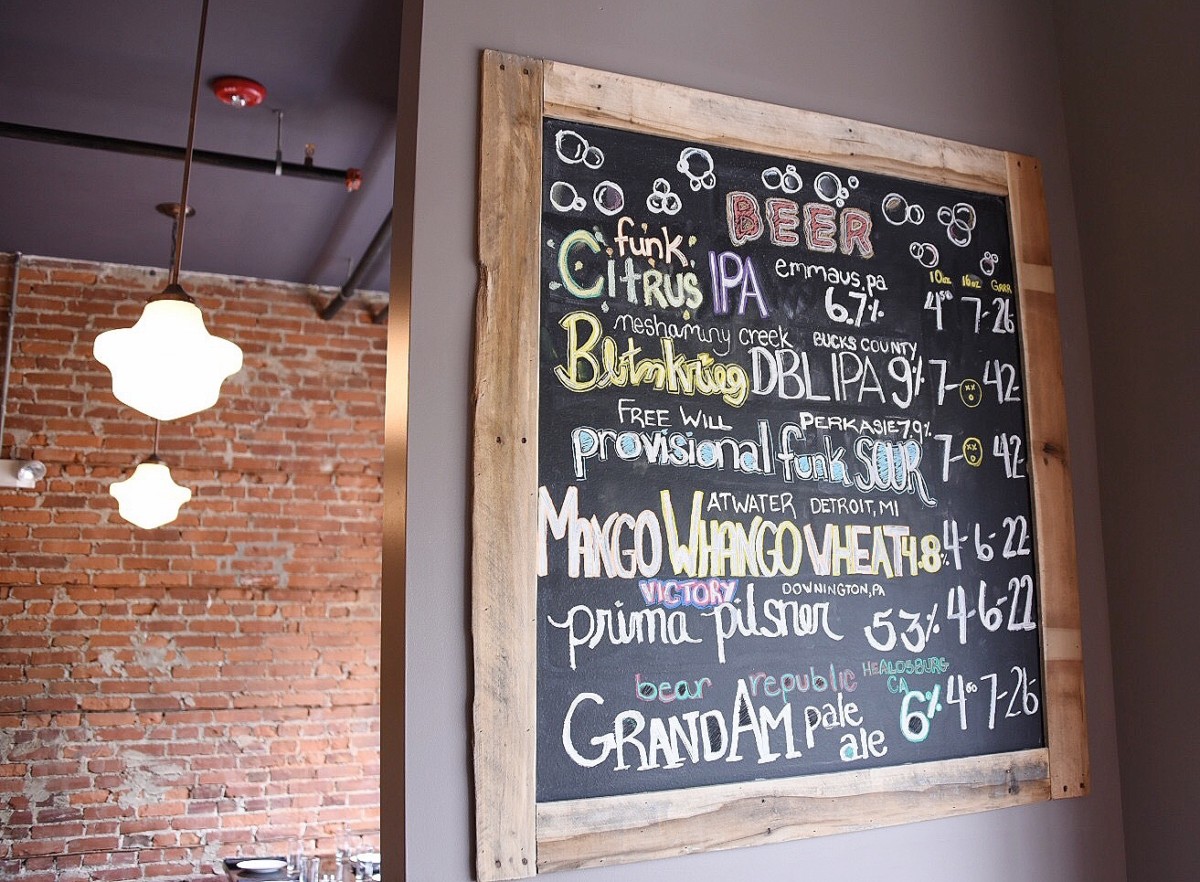 BEER
funk
CITRUS IPA emmaus, pa 10oz 16oz GRRR
6.7% 4⁵⁰ 7- 26
neshaminy creek BUCKS COUNTY
Blitzkrieg DBL IPA 9% 7- 42-
FREE WILL PERKASIE 7.9%
provisional funk SOUR 7- 42-
ATWATER DETROIT, MI
MANGO WHANGO WHEAT 4.8% 4-6-22
VICTORY DOWNINGTON, PA
prima pilsner 53% 4-6-22
bear republic HEALDSBURG
CA
GRANDAM pale 6% 4⁰⁰ 7-26
ale